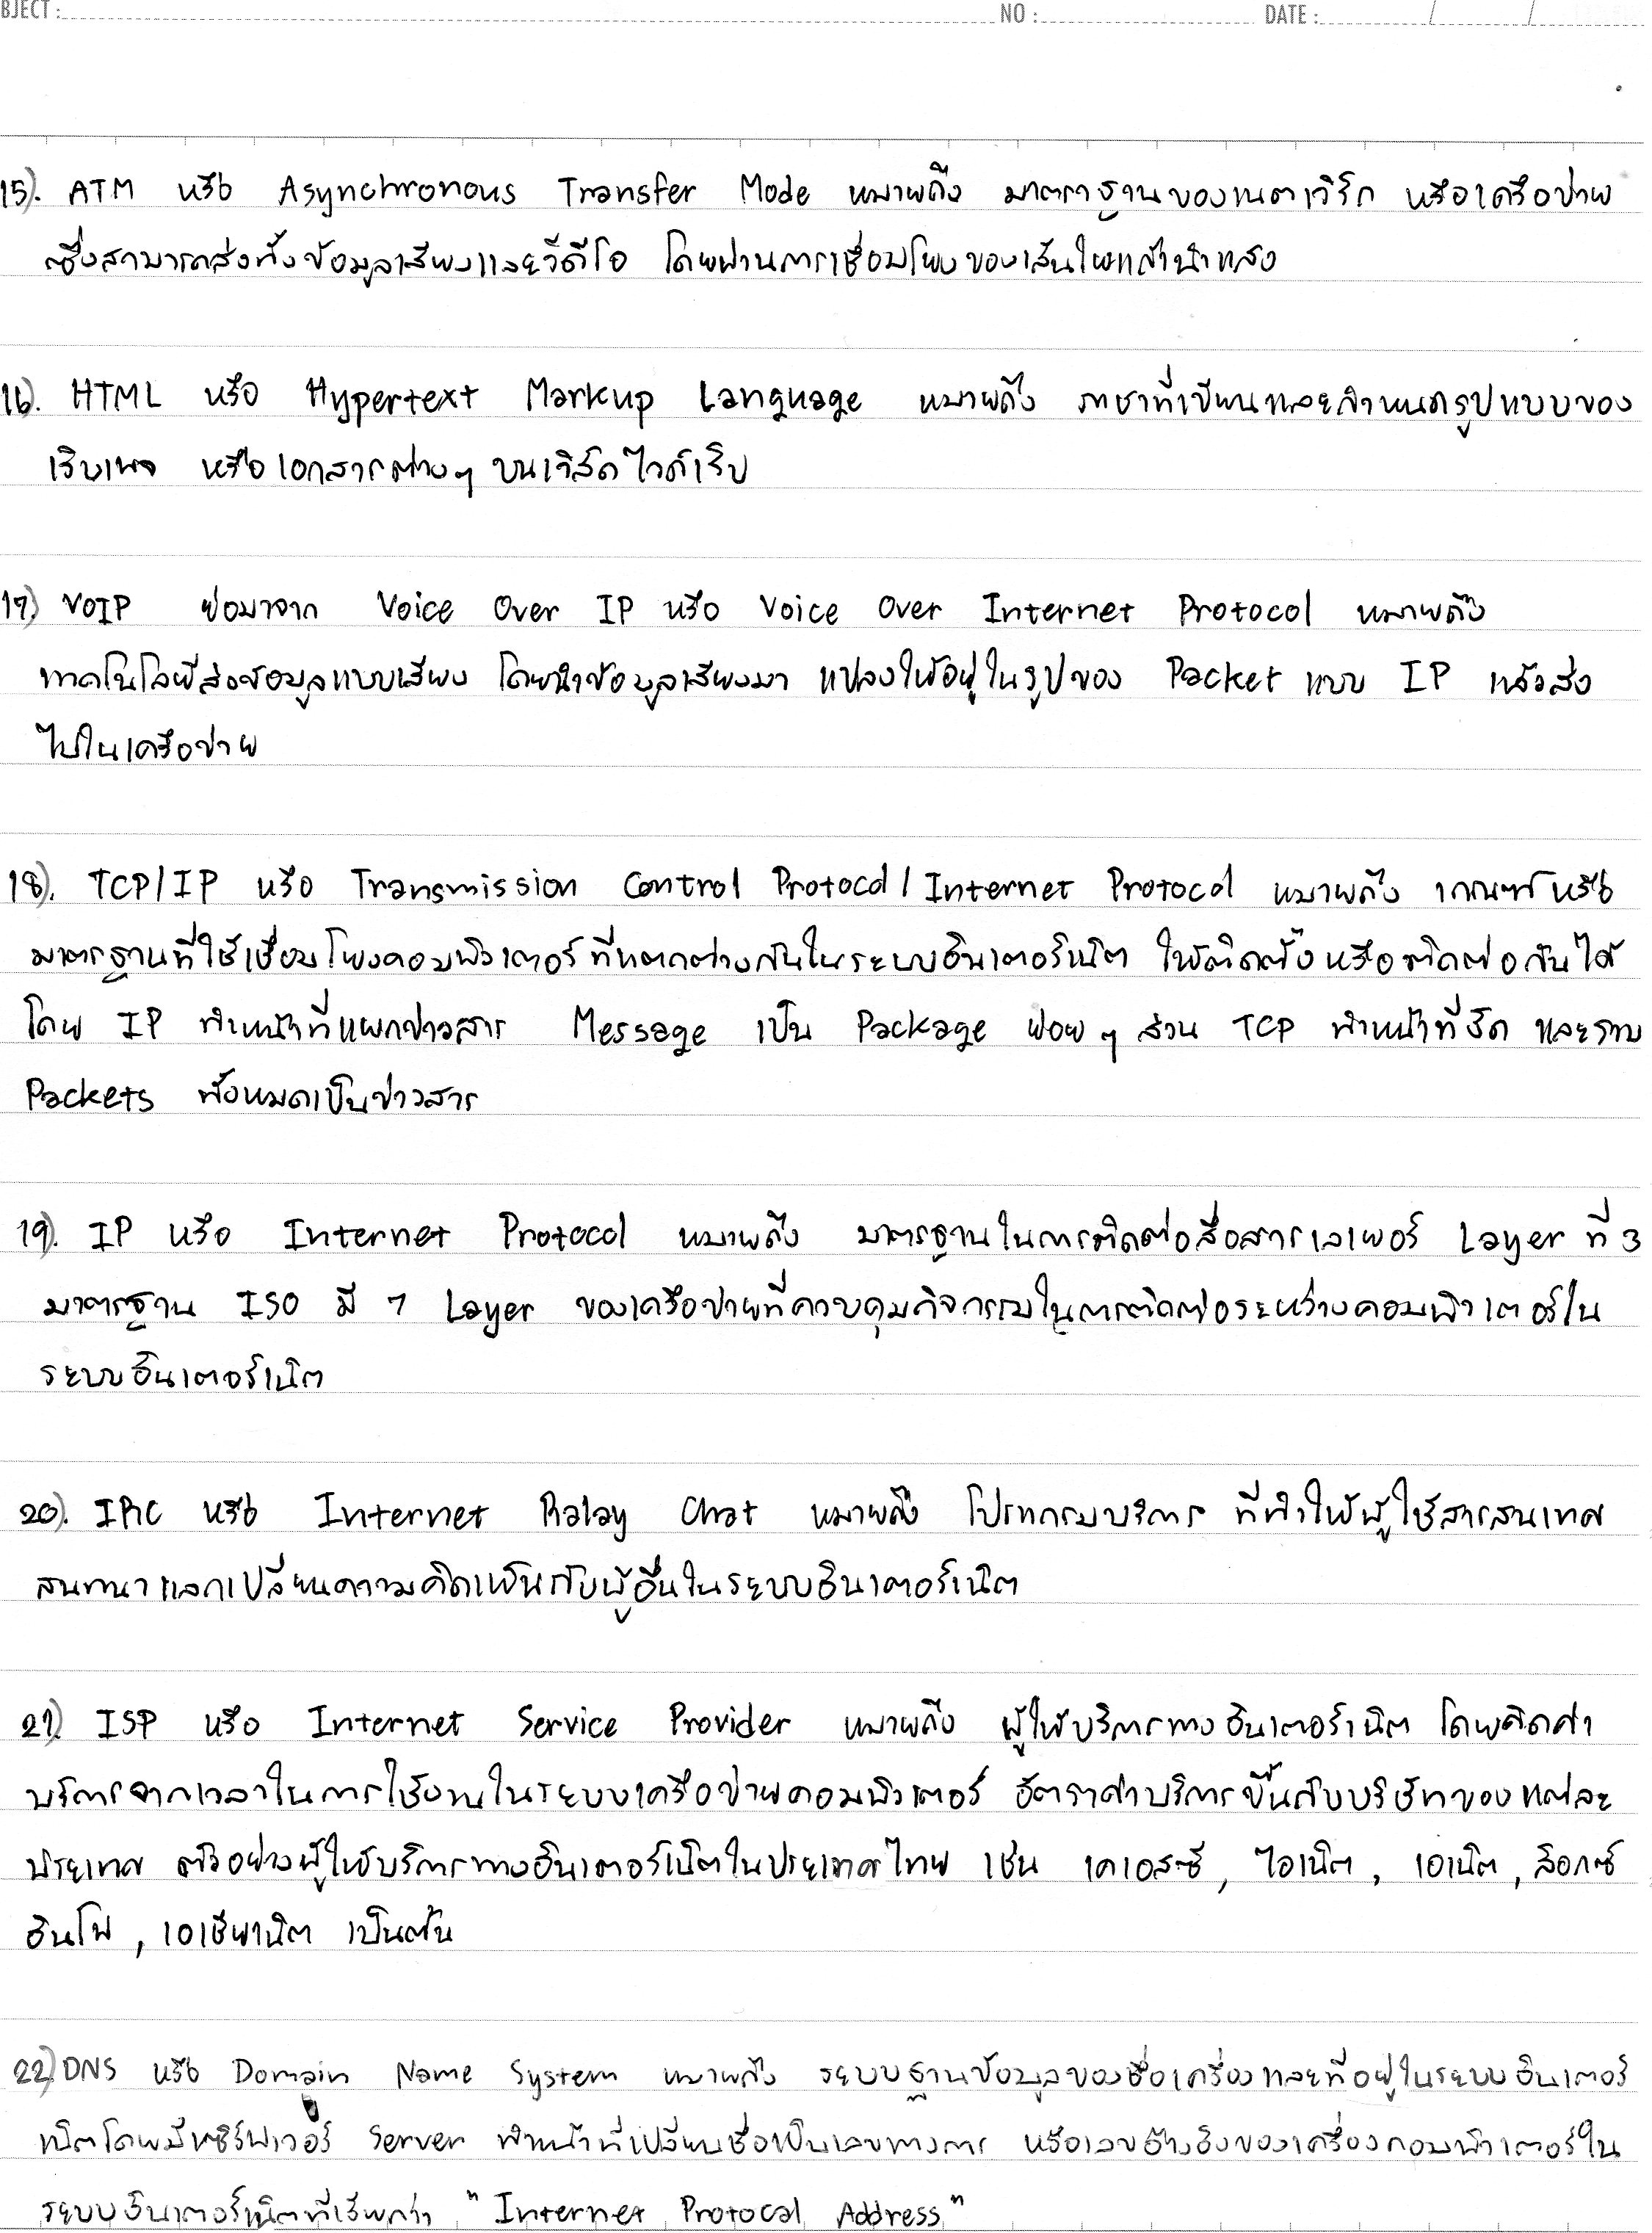 BJECT : NO : DATE : / /
15). ATM หรือ Asynchronous Transfer Mode หมายถึง มาตราฐานของเนตเวิร์ก หรือเครือข่าย
ซึ่งสามารถส่งทั้งข้อมูลเสียงและวีดีโอ โดยผ่านการเชื่อมโยงของเส้นใยแก้วนำแสง
16). HTML หรือ Hypertext Markup Language หมายถึง ภาษาที่เขียนและกำหนดรูปแบบของ
เว็บเพจ หรือเอกสารต่างๆ บนเวิล์ดไวด์เว็บ
17) VOIP ย่อมาจาก Voice Over IP หรือ Voice Over Internet Protocol หมายถึง
เทคโนโลยีส่งข้อมูลแบบเสียง โดยนำข้อมูลเสียงมา แปลงให้อยู่ในรูปของ Packet แบบ IP แล้วส่ง
ไปในเครือข่าย
18). TCP/IP หรือ Transmission Control Protocol/Internet Protocol หมายถึง เกณฑ์หรือ
มาตรฐานที่ใช้เชื่อมโยงคอมพิวเตอร์ที่แตกต่างกันในระบบอินเตอร์เน็ต ให้ติดตั้งหรือติดต่อกันได้
โดย IP ทำหน้าที่แยกข่าวสาร Message เป็น Package ย่อยๆ ส่วน TCP ทำหน้าที่จัด และรวม
Packets ทั้งหมดเป็นข่าวสาร
19). IP หรือ Internet Protocol หมายถึง มาตรฐานในการติดต่อสื่อสารเลเยอร์ Layer ที่ 3
มาตรฐาน ISO มี 7 Layer ของเครือข่ายที่ควบคุมกิจกรรมในการติดต่อระหว่างคอมพิวเตอร์ใน
ระบบอินเตอร์เน็ต
20). IRC หรือ Internet Ralay Chat หมายถึง โปรแกรมบริการ ที่ทำให้ผู้ใช้สารสนเทศ
สนทนาแลกเปลี่ยนความคิดเห็นกับผู้อื่นในระบบอินเตอร์เน็ต
21) ISP หรือ Internet Service Provider หมายถึง ผู้ให้บริการทางอินเตอร์เน็ต โดยคิดค่า
บริการจากเวลาในการใช้งานในระบบเครือข่ายคอมพิวเตอร์ อัตราค่าบริการขึ้นกับบริษัทของแต่ละ
ประเทศ ตัวอย่างผู้ให้บริการทางอินเตอร์เน็ตในประเทศไทย เช่น เคเอสซี, ไอเน็ต, เอเน็ต, ล็อกซ์
อินโฟ, เอเชียเน็ต เป็นต้น
22) DNS หรือ Domain Name System หมายถึง ระบบฐานข้อมูลของชื่อเครื่องและที่อยู่ในระบบอินเตอร์
เน็ตโดยมีเซิร์ฟเวอร์ Server ทำหน้าที่เปลี่ยนชื่อเป็นเลขทางการ หรือเลขอ้างอิงของเครื่องคอมพิวเตอร์ใน
ระบบอินเตอร์เน็ตที่เรียกว่า "Internet Protocal Address"